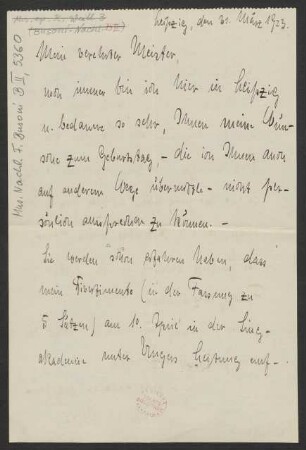 Leipzig, den 31. März 1923.
Mein verehrter Meister,
noch immer bin ich hier in Leipzig
u. bedaure so sehr, Ihnen meine Wün-
sche zum Geburtstag, – die ich Ihnen auch
auf anderem Wege übermittle – nicht per-
sönlich aussprechen zu können. –
Sie werden schon erfahren haben, dass
mein Divertimento (in der Fassung zu
5 Sätzen) am 10. April in der Sing-
akademie unter Ungers Leitung auf-
Mus. Nachl. F. Busoni B II, 5360
(Busoni-Nachl.